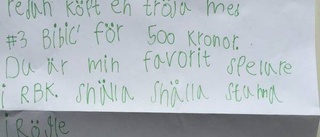 redan köpt en tröja med
#3 Bibic' för 500 kronor.
Du är min favorit spelare
i RBK. snälla snälla stanna
i Rögle